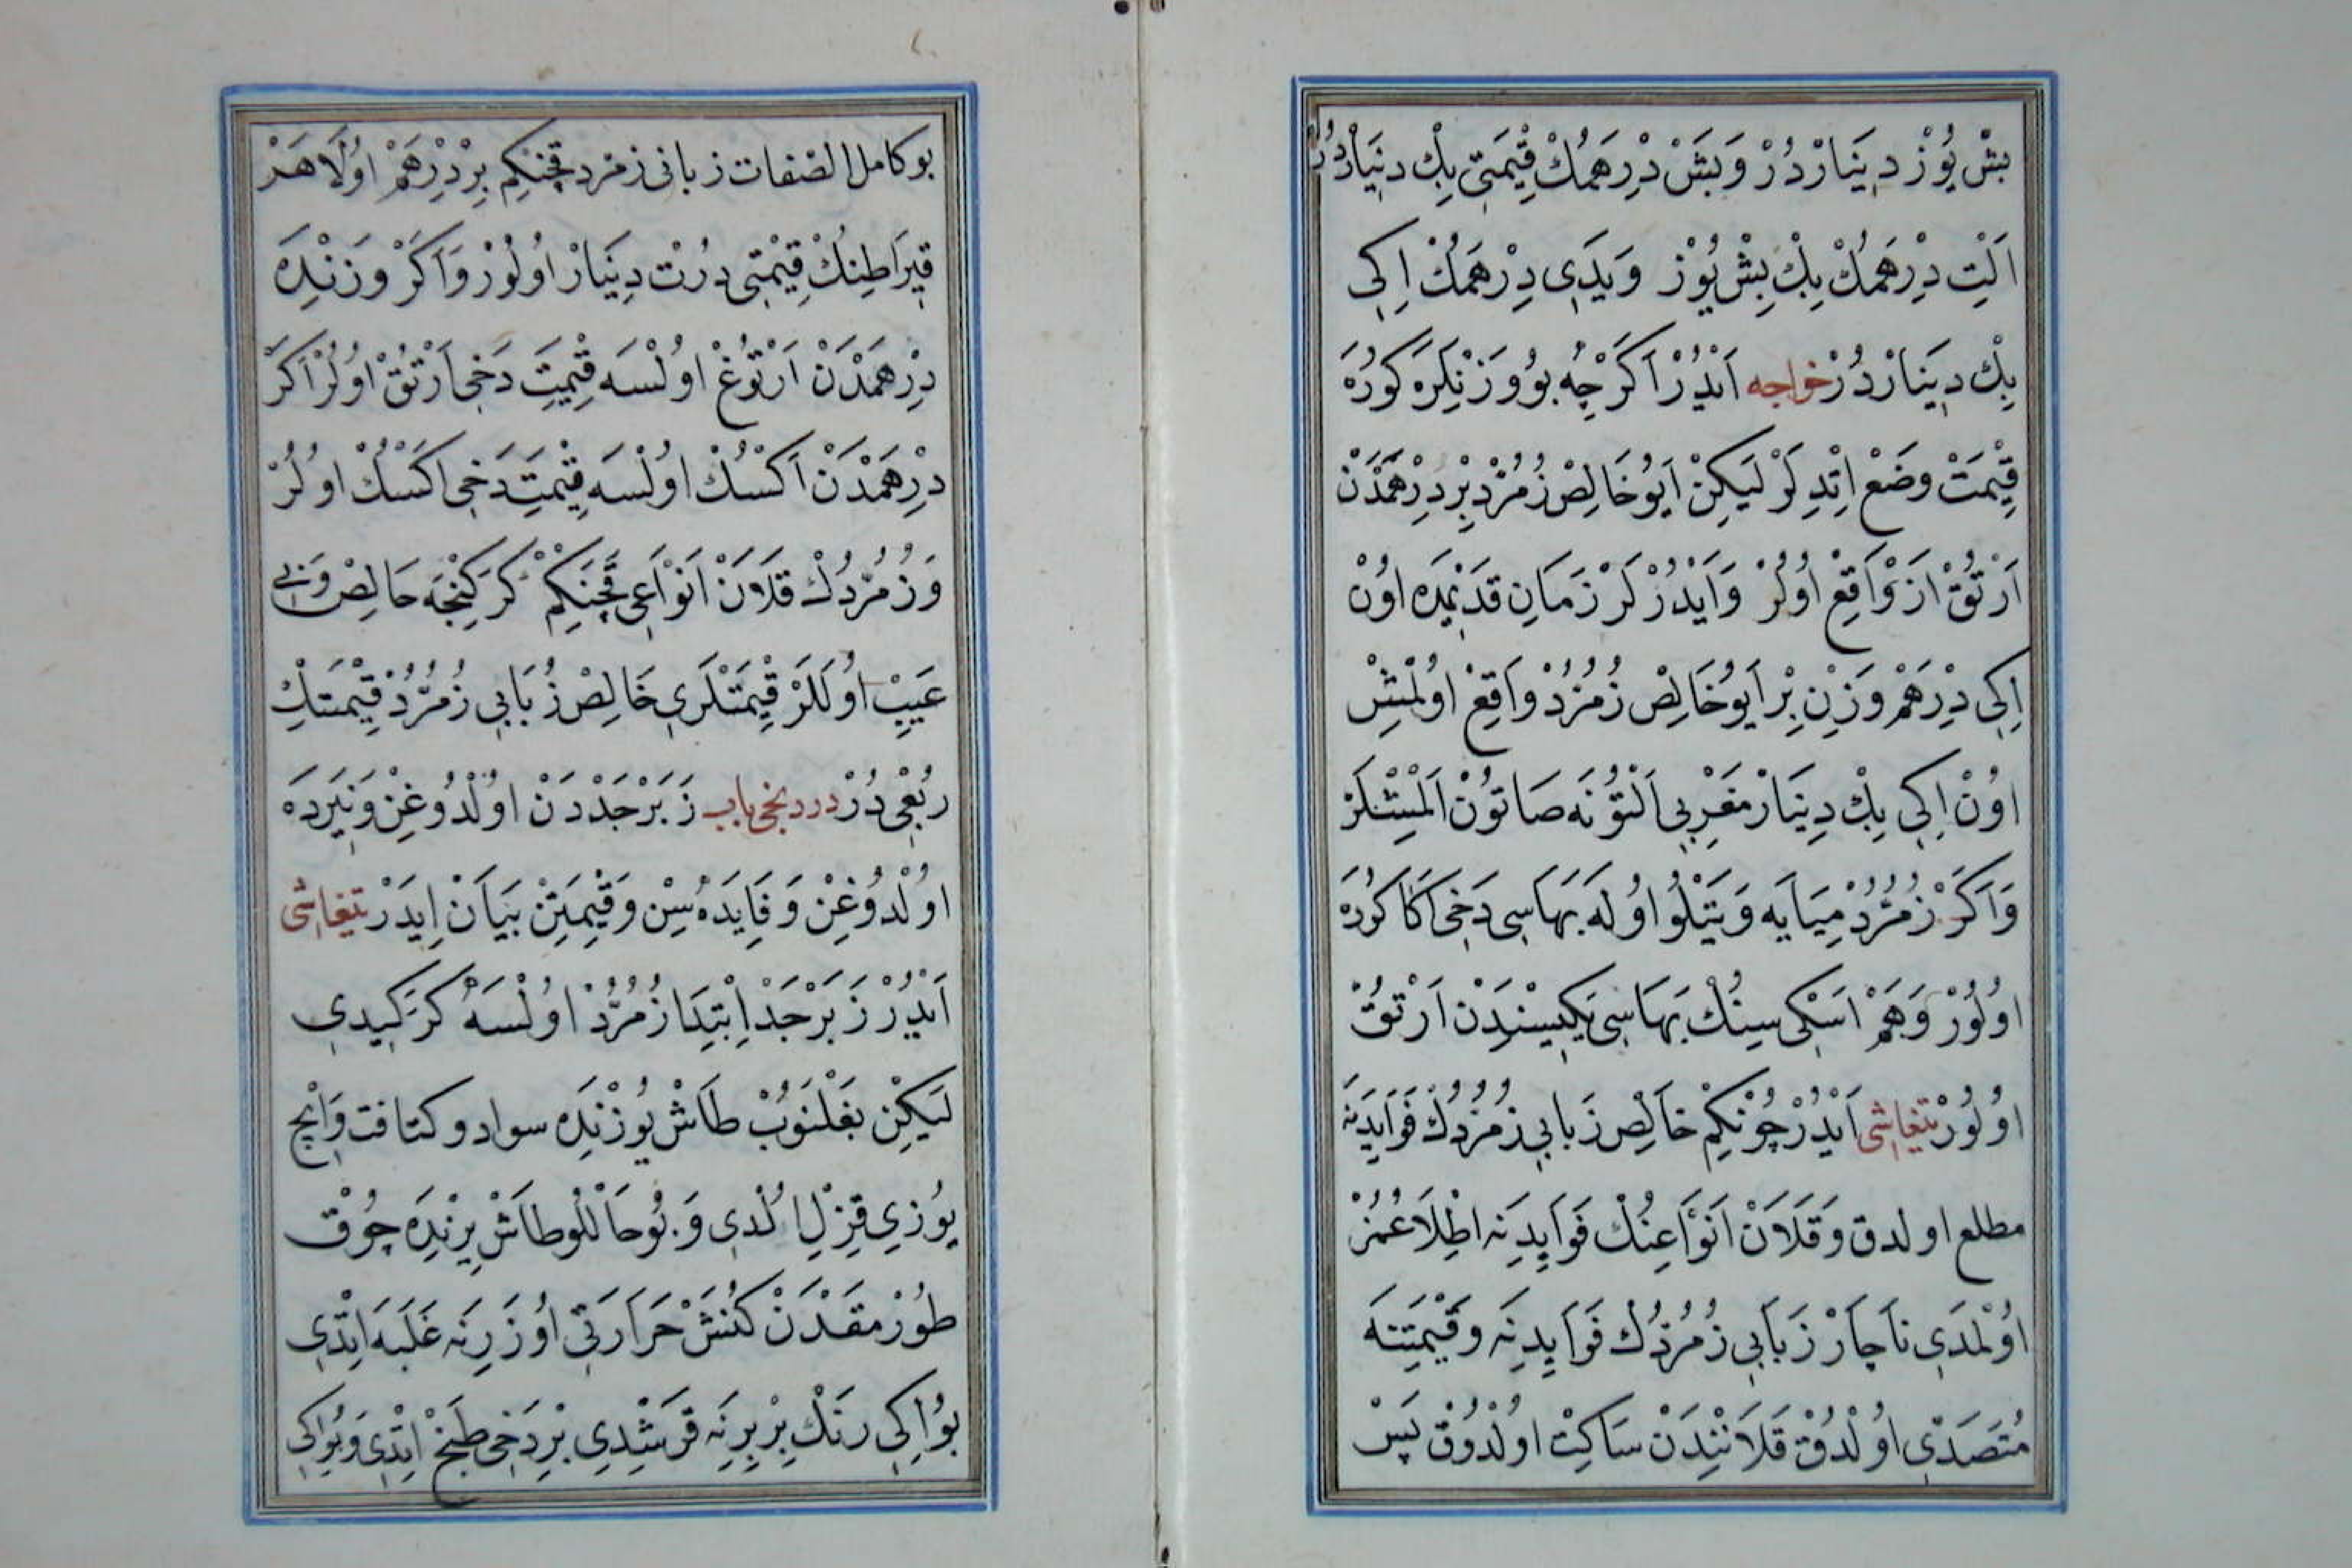 بِشْ يُوزْ دِينَارْدُرْ وَبَشْ دِرْهَمُكْ قِيْمَتِي بِكْ دِينَارْدُرْ
اَلْتِ دِرْهَمُكْ بِكْ بِشْ يُوزْ وَيَدِي دِرْهَمُكْ اِكِي
بِكْ دِينَارْدُرْ خواجه اَيْدُرْ اَكَرْچِه بُو وَزْنِلَرَه كُورَه
قِيْمَتْ وَضَعْ اِتْدِلَرْ لَيكِنْ اَيُو خَالِصْ زُمُرُّدْ بِرْ دِرْهَمْدَنْ
اَرْتُقْ اَزْ وَاقِعْ اُولُرْ وَاَيْدُرْلَرْ زَمَانِ قَدِيمْدَه اُونْ
اِكِي دِرْهَمْ وَزِنْ بِرْ اَيُو خَالِصْ زُمُرُّدْ وَاقِعْ اُولْمِشْ
اُونْ اِكِي بِكْ دِينَارْ مَغْرِبِي اَلْتُونَه صَاتُونْ اَلْمِشْلَرْ
وَاَكَرْ زُمُرُّدْ مِيَايَه وَيَتِيْلُو اُولَه بَهَاسِي دَخِي اَكَا كُورَه
اُولُورْ وَهَمْ اَسْكِي سِينُكْ بَهَاسِي يَكِيسِنْدَنْ اَرْتُقْ
اُولُورْ تيفاشى اَيْدُرْ چُونْكِمْ خَالِصْ زَبَابِي زُمُرُّدُكْ فَوَايِدِنَه
مطلع اولدق وَقَلَانْ اَنْوَاعِنُكْ فَوَايِدِنَه اِطِّلَاعُمُزْ
اُولْمَدِي نَاچَارْ زَبَابِي زُمُرُّدُكْ فَوَايِدِنَه وَقِيْمَتِنَه
مُتَصَدِّي اُولْدُقْ قَلَانِنْدَنْ سَاكِتْ اُولْدُوقْ پَسْ
بو كامل الصفات زبانى زمرد قچنكِم بِرْ دِرْهَمْ اُولَا هَرْ
قِيرَاطِنُكْ قِيْمَتِي دُرْتْ دِينَارْ اُولُورْ وَاَكَرْ وَزِنْدَه
دِرْهَمْدَنْ اَرْتُوغْ اُولْسَه قِيْمَتِ دَخِي اَرْتُقْ اُولُرْ اَكَرْ
دِرْهَمْدَنْ اَكْسُكْ اُولْسَه قِيْمَتِ دَخِي اَكْسُكْ اُولُرْ
وَزُمُرُّدُكْ قَلَانْ اَنْوَاعِي قَچَنْكِمْ كَرَكِنْجَه خَالِصْ وَبِي
عَيِبْ اُولَلَرْ قِيْمَتْلَرِي خَالِصْ زُبَابِي زُمُرُّدْ قِيْمَتِنِكْ
رُبْعِي دُرْ دردنجى باب زَبَرْجَدْدَنْ اُولْدُوغِنْ وَنِيرَدَه
اُولْدُوغِنْ وَفَايِدَه سِنْ وَقِيْمَتِنْ بَيَانْ اِيدَرْ تيغاشى
اَيْدُرْ زَبَرْجَدْ اِبْتِدَا زُمُرُّدْ اُولْسَه كَرَكِيدِي
لَيكِنْ بَغْلَنُوبْ طَاشْ يُوزِنْدَه سواد و كثافت وَاِيچ
يُوزِي قِزِلْ اُلْدِي وَبُو حَاللُو طَاشْ يِرِنْدَه چُوقْ
طُورْمَقْدَنْ كُنَشْ حَرَارَتِي اُوزَرِنَه غَلَبَه اِتْدِي
بُو اِكِي رَنْكْ بِرْبِرِنَه قَرِشْدِي بِرْ دَخِي طَبْخْ اِتْدِي وَبُو اِكِي